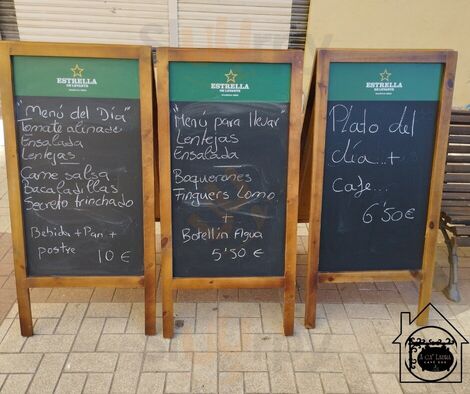 ESTRELLA
DE LEVANTE
"Menú del Día"
Tomate aliñado
Ensalada
Lentejas
Carne salsa
Bacaladillas
Secreto trinchado
Bebida + Pan +
postre 10 €
ESTRELLA
DE LEVANTE
"Menú para llevar"
Lentejas
Ensalada
Boquerones
Finguers Lomo
+
Botellin Agua
5'50 €
ESTRELLA
DE LEVANTE
Plato del
día...+
Cafe...
6'50 €